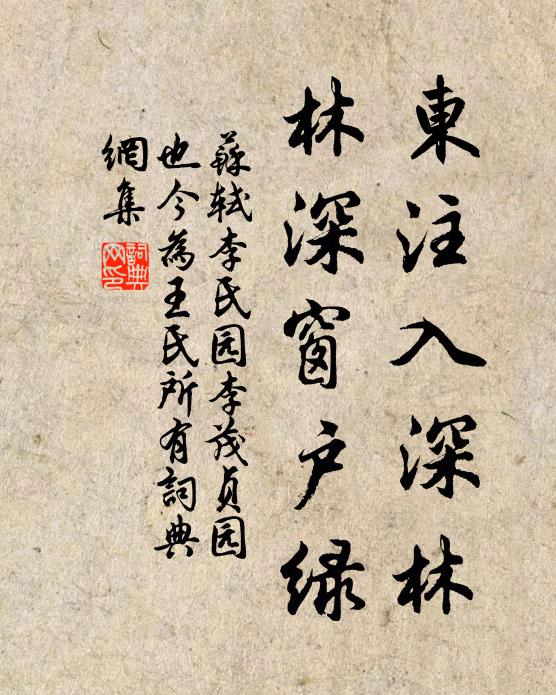 東注入深林
林深窗户绿
蘇軾李氏园李茂貞园
也今為王氏所有詞典
網集
詞典
网印